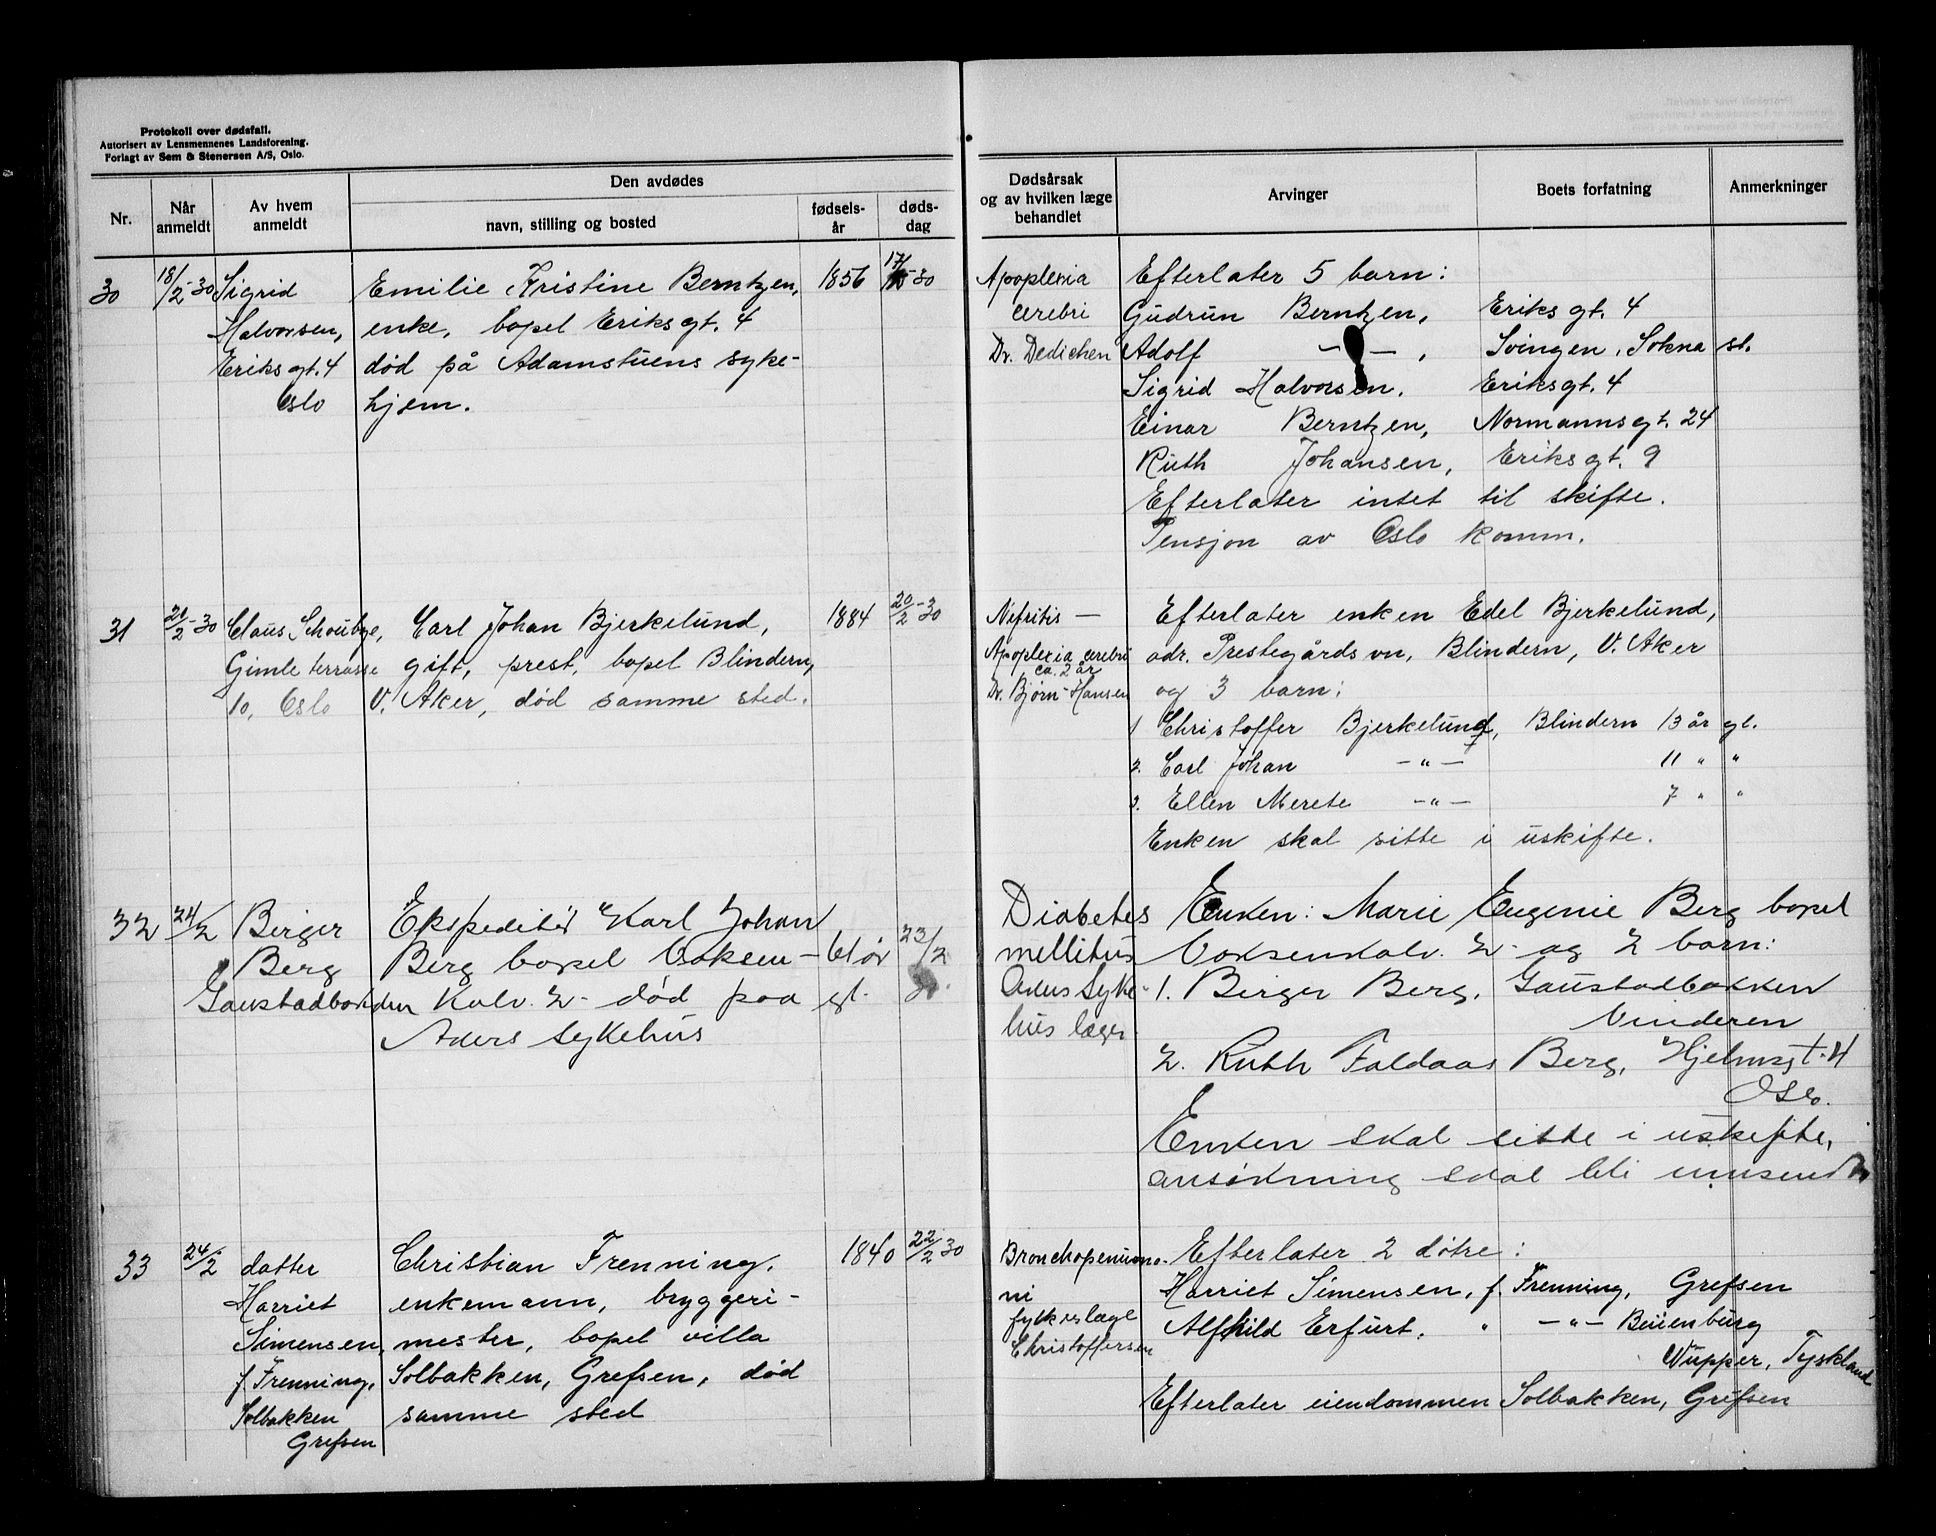 Protokoll over dødsfall.
Autorisert av Lensmennenes Landsforening.
Forlagt av Sem & Stenersen A/S, Oslo.
Nr.
Når anmeldt
Av hvem anmeldt
Den avdødes
navn, stilling og bosted
fødsels-år
døds-dag
Dødsårsak og av hvilken læge behandlet
Arvinger
Boets forfatning
Anmerkninger
30
18/2-30
Sigrid
Halvorsen,
Eriksgt. 4
Oslo
Emilie Kristine Berntzen,
enke, bopel Eriksgt. 4
død på Adamstuens syke-
hjem.
1856
17/-30
Apoplexia
cerebri
Dr. Dedichen
Efterlater 5 barn:
Gudrun Berntzen, Eriksgt. 4
Adolf — — , Svingen, Sokna st.
Sigrid Halvorsen, Eriksgt. 4
Einar Berntzen, Normannsgt. 24
Ruth Johansen, Eriksgt. 9
Efterlater intet til skifte.
Pensjon av Oslo komm.
31
21/2-30
Claus Schoubye,
Gimle terrasse
10, Oslo
Carl Johan Bjerkelund,
gift, prest, bopel Blindern,
V. Aker, død samme sted.
1884
20/2-30
Nefritis —
Apoplexia cerebri
ca. 2 år
Dr. Bjørn-Hansen
Efterlater enken Edel Bjerkelund,
adr. Prestegårdsvn, Blindern, V. Aker
og 3 barn:
1 Christoffer Bjerkelund, Blindern 13 år gl.
2. Carl Johan —"— 11 " "
3. Ellen Merete —"— 7 " "
Enken skal sitte i uskifte.
32
24/2
Berger
Berg
Gaustadbakken
Ekspeditør Karl Johan
Berg bopel Voksen-
Kolv. 2 - død paa
Akers Sykehus
61 år
gl.
23/2
30.
Diabetes
mellitus
Akers Syke-
hus læger
Enken: Marie Eugenie Berg bopel
Voksenkolv. 2 - og 2 barn:
1. Birger Berg, Gaustadbakken
Vinderen
2. Ruth Faldaas Berg, Hjelmsgt. 4
Oslo.
Enken skal sitte i uskifte,
ansökning skal bli innsendt
33
24/2
datter
Harriet
Simensen,
f. Frenning,
Solbakken
Grefsen
Christian Frenning,
enkemann, bryggeri-
mester, bopel villa
Solbakken, Grefsen, død
samme sted
1840
22/2 30
Bronchopenumo-
ni
fylkeslæge
Christoffersen
Efterlater 2 døtre:
Harriet Simensen, f. Frenning, Grefsen
Alfhild Erfurt, " —"— Beienburg
Wupper, Tyskland
Efterlater eiendommen Solbakken, Grefsen